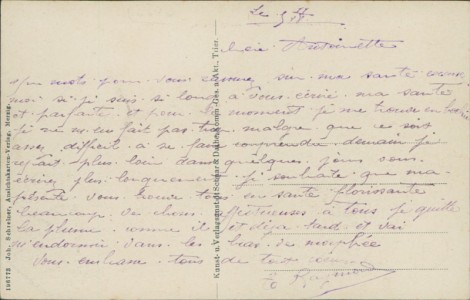 Le 3
Chère Antoinette
quelques mots pour vous donner sur ma santé
moi si je suis si long à vous écrire ma santé
est parfaite et pour moment je me trouve en
je ne m'en fait pas trop malgre que ce soit
assez difficile à se faire comprendre demain je
repart plus loin dans quelques jours vous
écrirez plus longuement je souhaite que ma
présente vous trouve tous en santé florissante
beaucoup de choses affectueuses à tous je quitte
la plume comme il est déjà tard et vai
m'endormir dans les bras de morphée
Vous embrasse tous de tout coeur
Raymond
Kunst- u. Verlagsanstalt Schaar & Dathe, Komm.-Ges. a. Akt., Trier.
156773 Joh. Schreiner, Ansichtskarten-Verlag, Merzig.